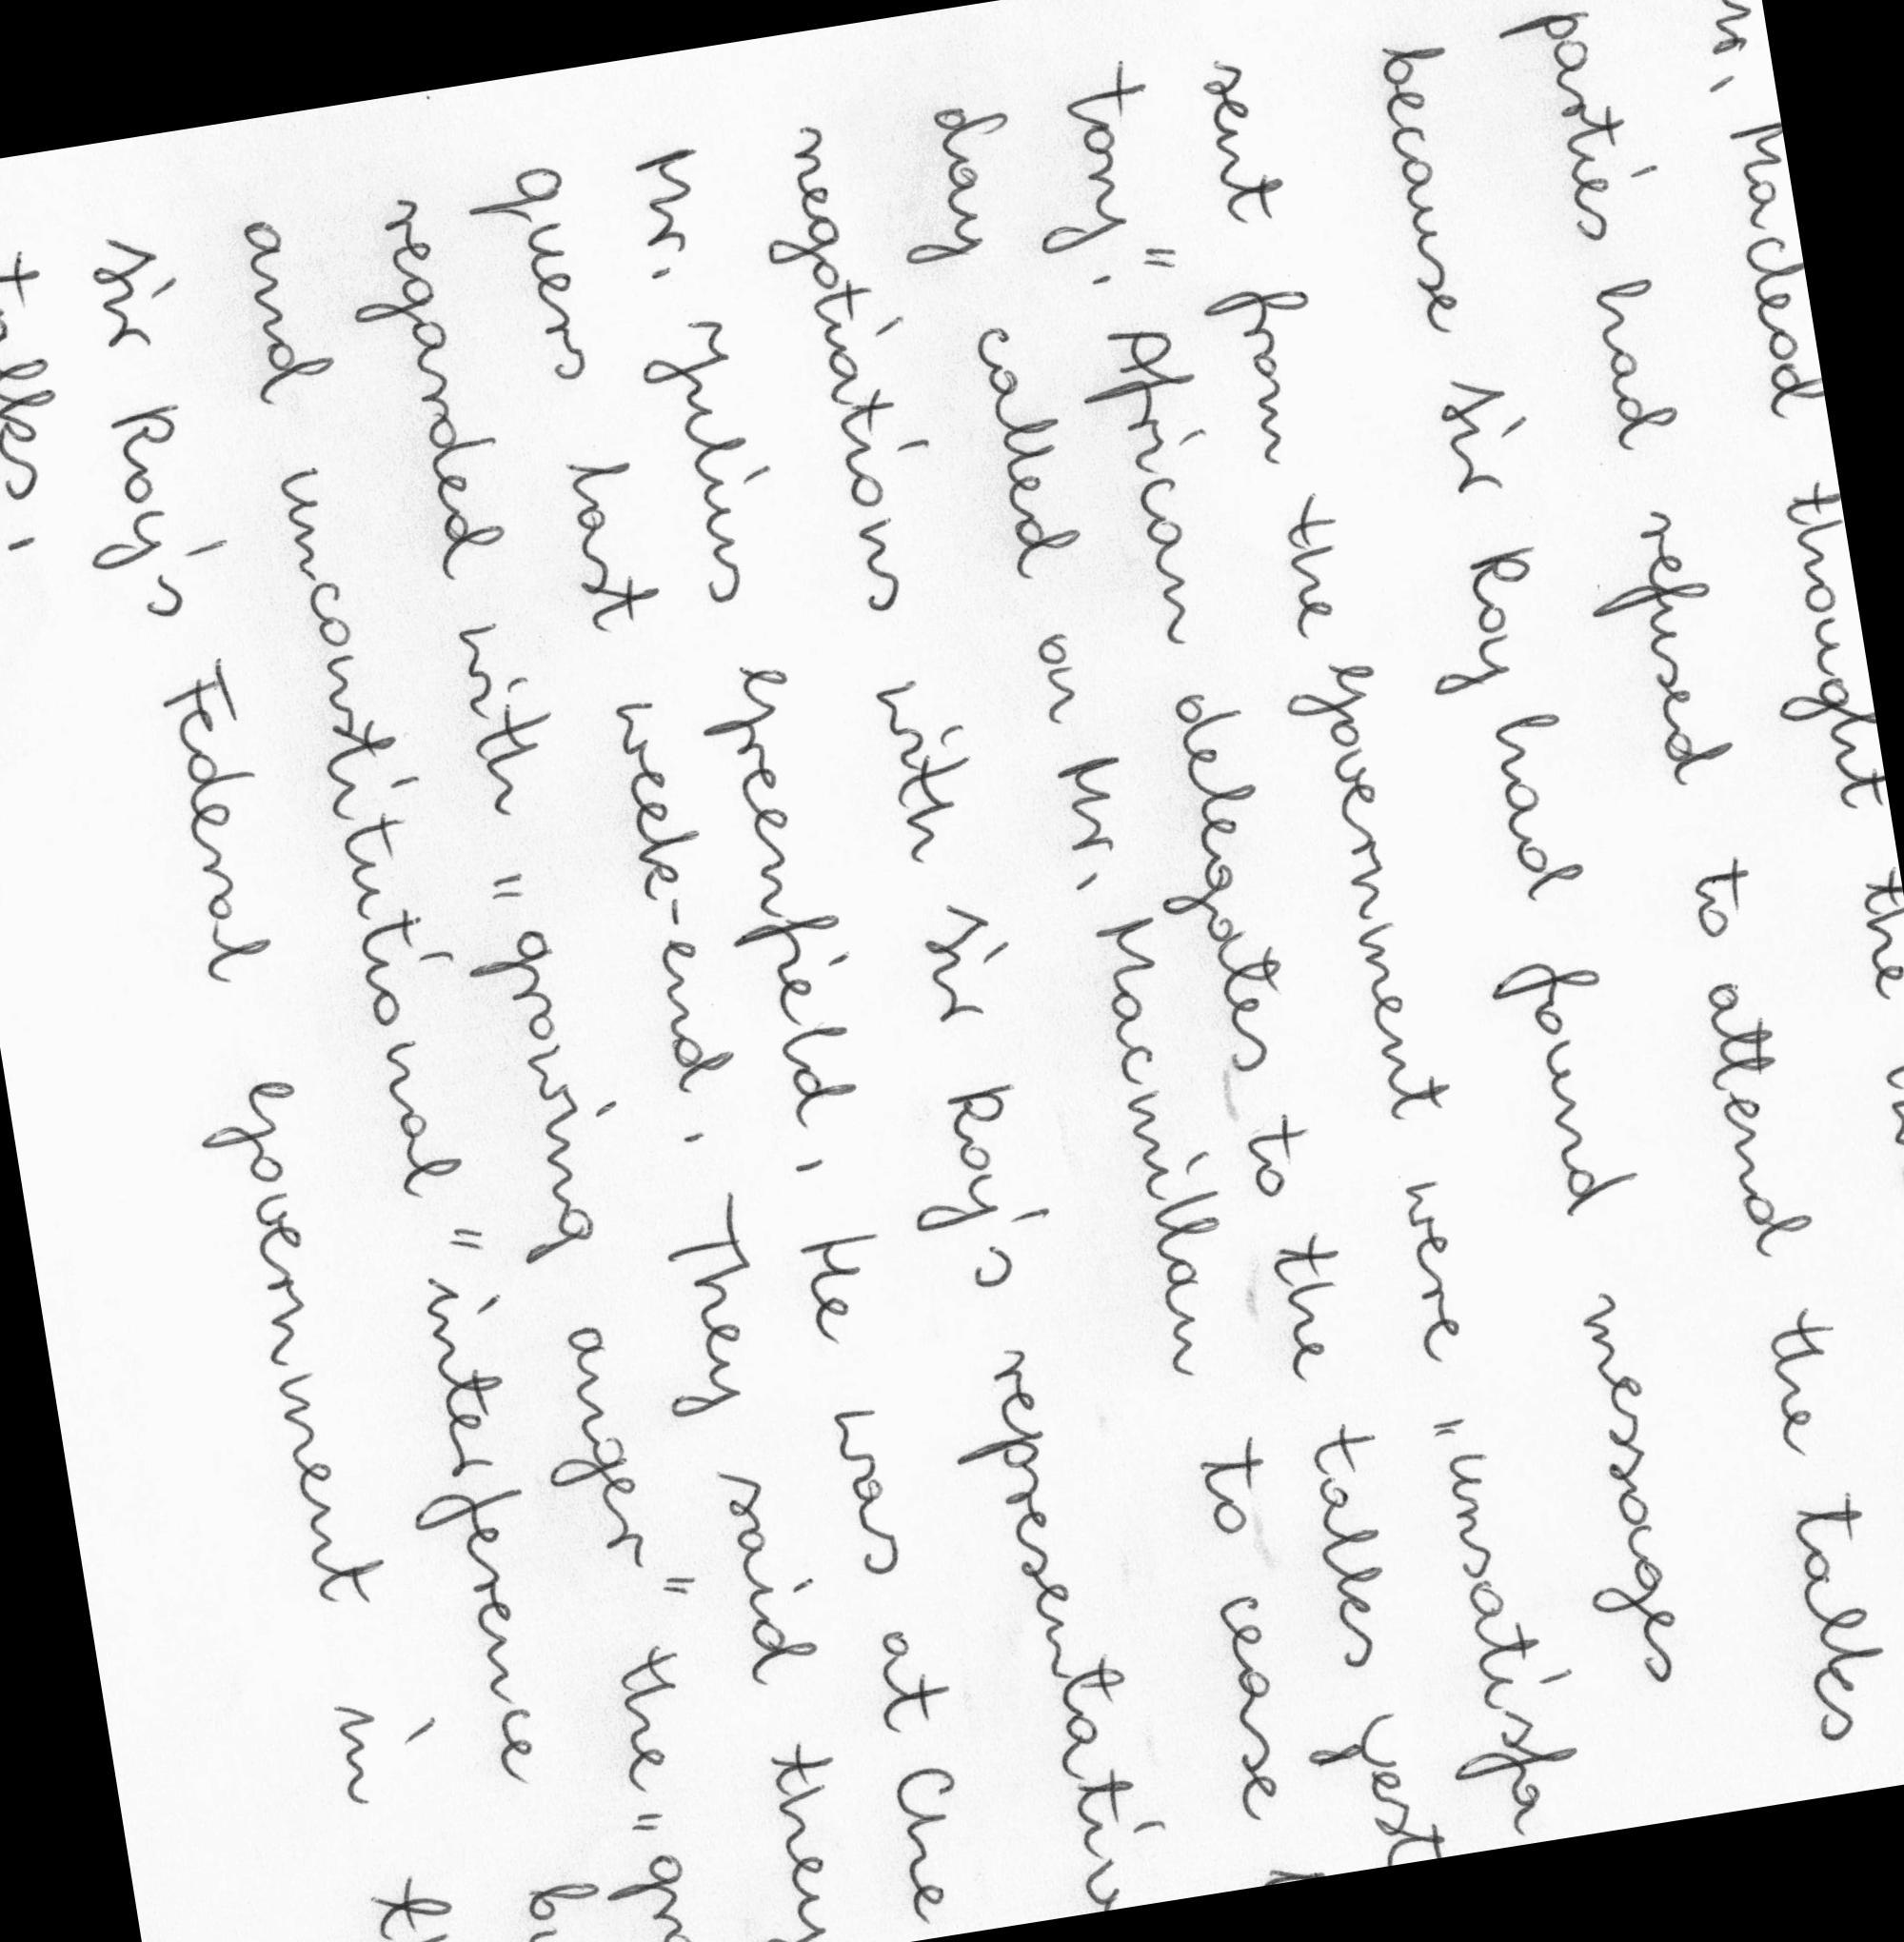 Mr. Macleod thought the
parties had refused to attend the talks
because Sir Roy had found messages
sent from the government were "unsatisfa
tory." African delegates to the talks yest
day called on Mr. Macmillan to cease
negotiations with Sir Roy's representativ
Mr. Julius Greenfield. He was at Che
quers last week-end. They said they
regarded with "growing anger" the "gr
and unconstitutional" interference by
Sir Roy's Federal Government in th
talks.